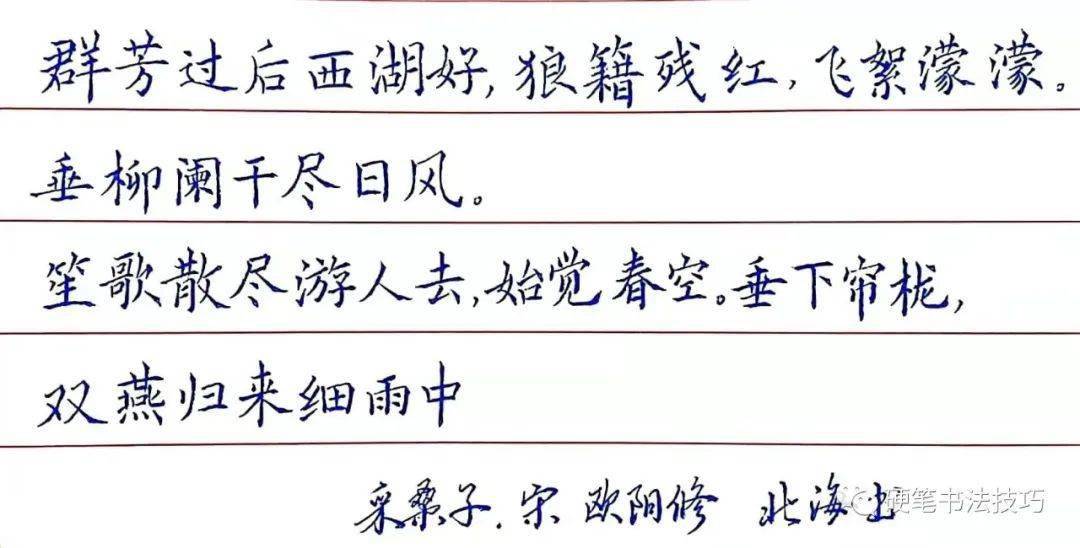 群芳过后西湖好,狼籍残红,飞絮濛濛。
垂柳阑干尽日风。
笙歌散尽游人去,始觉春空。垂下帘栊,
双燕归来细雨中
采桑子.宋 欧阳修 北海书
硬笔书法技巧